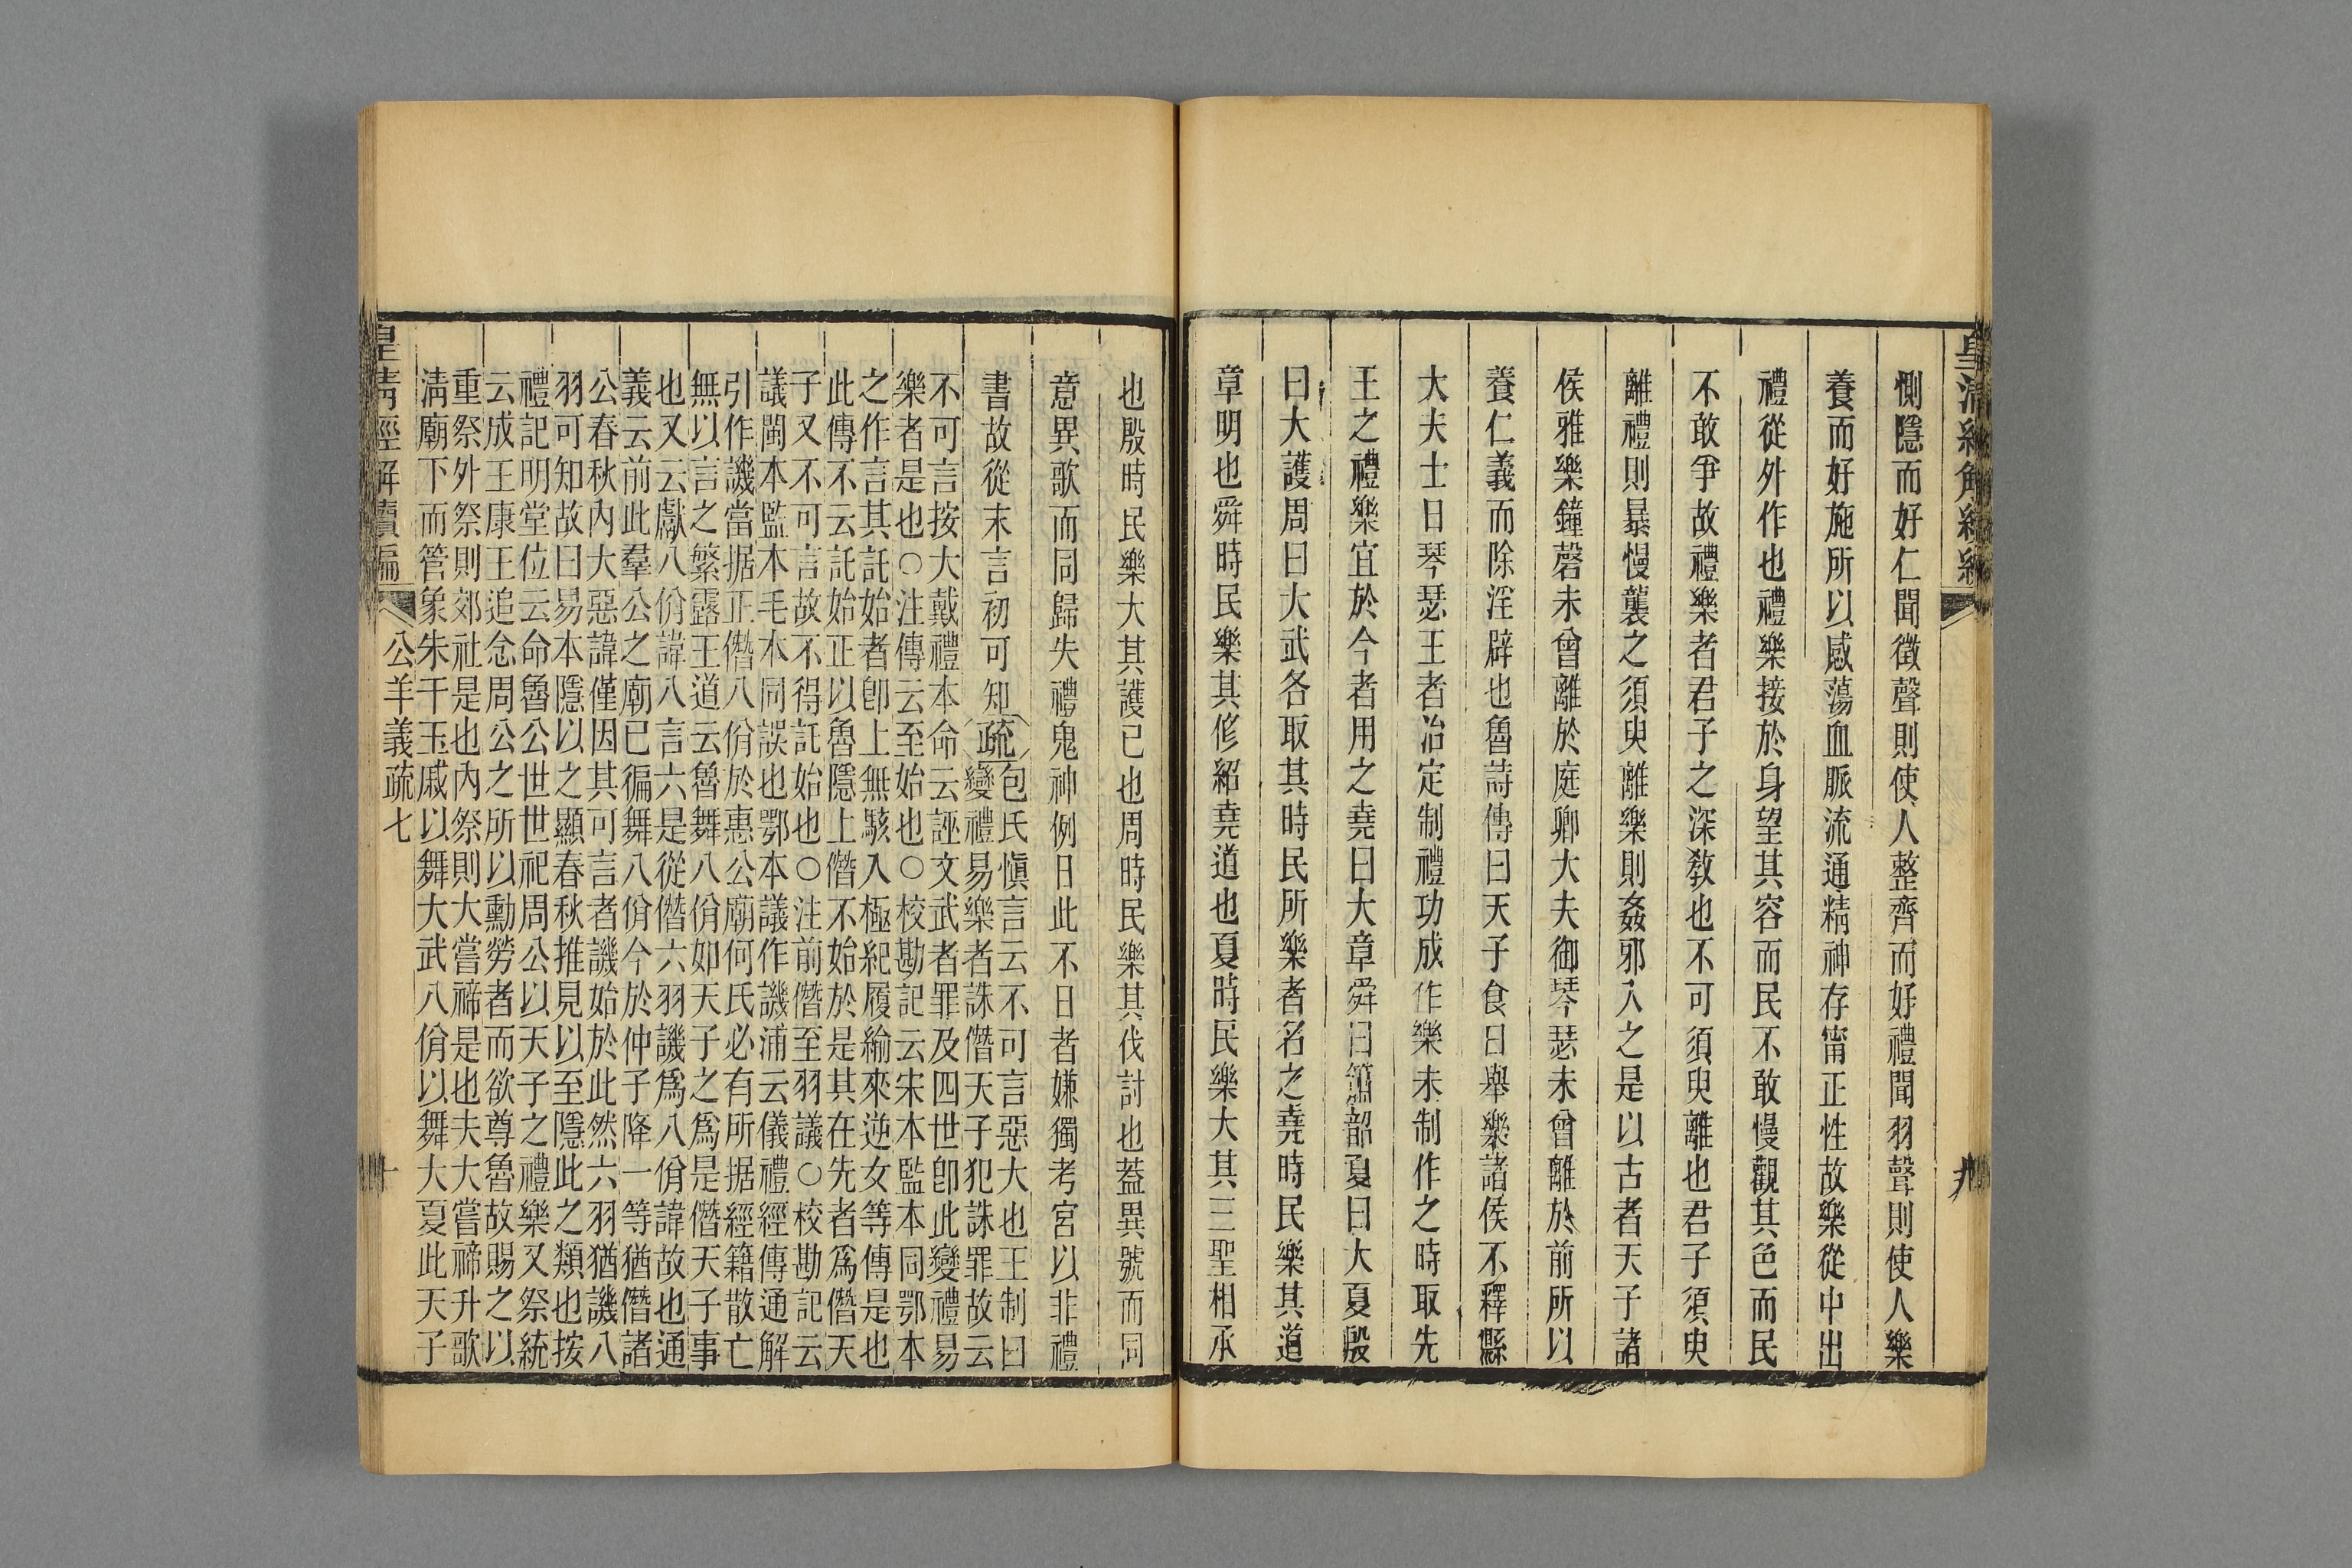 惻隱而好仁聞徵聲則使人整齊而好禮聞羽聲則使人樂
養而好施所以感蕩血脈流通精神存甯正性故樂從中出
禮從外作也禮樂接於身望其容而民不敢慢觀其色而民
不敢爭故禮樂者君子之深教也不可須臾離也君子須臾
離禮則暴慢襲之須臾離樂則姦邪入之是以古者天子諸
侯雅樂鐘磬未曾離於庭卿大夫御琴瑟未曾離於前所以
養仁義而除淫辟也魯詩傳曰天子食日舉樂諸侯不釋縣
大夫士日琴瑟王者治定制禮功成作樂未制作之時取先
王之禮樂宜於今者用之堯曰大章舜曰簫韶夏曰大夏殷
曰大護周曰大武各取其時民所樂者名之堯時民樂其道
章明也舜時民樂其修紹堯道也夏時民樂大其三聖相承
也殷時民樂大其護已也周時民樂其伐討也葢異號而同
意異歌而同歸失禮鬼神例日此不日者嫌獨考宮以非禮
書故從末言初可知疏
包氏愼言云不可言惡大也王制曰
變禮易樂者誅僭天子犯誅罪故云
不可言按大戴禮本命云誣文武者罪及四世卽此變禮易
樂者是也○注傳云至始也○校勘記云宋本監本同鄂本
之作言其託始者卽上無駭入極紀履緰來逆女等傳是也
此傳不云託始正以魯隱上僭不始於是其在先者爲僭天
子又不可言故不得託始也○注前僭至羽議○校勘記云
議閩本監本毛本同誤也鄂本議作譏浦云儀禮經傳通解
引作譏當据正僭八佾於惠公廟何氏必有所据經籍散亡
無以言之繁露王道云魯舞八佾如天子之爲是僭天子事
也又云獻八佾諱八言六是從僭六羽譏爲八佾諱故也通
義云前此羣公之廟已徧舞八佾今於仲子降一等猶僭諸
公春秋內大惡諱僅因其可言者譏始於此然六羽猶譏八
羽可知故曰易本隱以之顯春秋推見以至隱此之類也按
禮記明堂位云命魯公世世祀周公以天子之禮樂又祭統
云成王康王追念周公之所以勳勞者而欲尊魯故賜之以
重祭外祭則郊社是也內祭則大嘗禘是也夫大嘗禘升歌
淸廟下而管象朱干玉戚以舞大武八佾以舞大夏此天子
皇淸經解續編
公羊義疏七
十